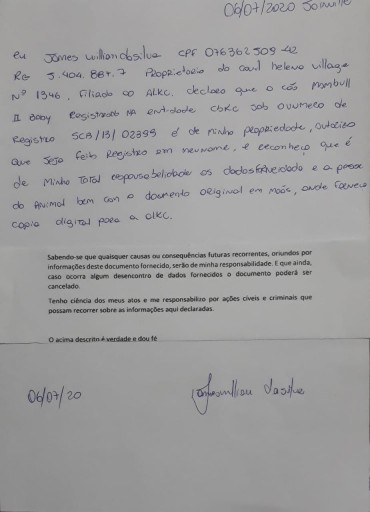 06/07/2020 Joinville
eu James Willian da Silva CPF 076362509-42
RG 5.404.887.7 Proprietario do canil helena village
Nº 1346, filiado ao ALKC. declaro que o cão
II Body Registrado NA entidade CBKC sob o numero de
Registro SCB/13/02399 é de minha propriedade, autorizo
que seja feito Registro em meu nome, e reconheço que é
de minha total responsabilidade os dados e a posse
do animal bem com o documento original em mãos, onde forneço
copia digital para a alkc.
Sabendo-se que quaisquer causas ou consequências futuras recorrentes, oriundos por
informações deste documento fornecido, serão de minha responsabilidade. E que ainda,
caso ocorra algum desencontro de dados fornecidos o documento poderá ser
cancelado.
Tenho ciência dos meus atos e me responsabilizo por ações cíveis e criminais que
possam recorrer sobre as informações aqui declaradas.
O acima descrito é verdade e dou fé
06/07/20